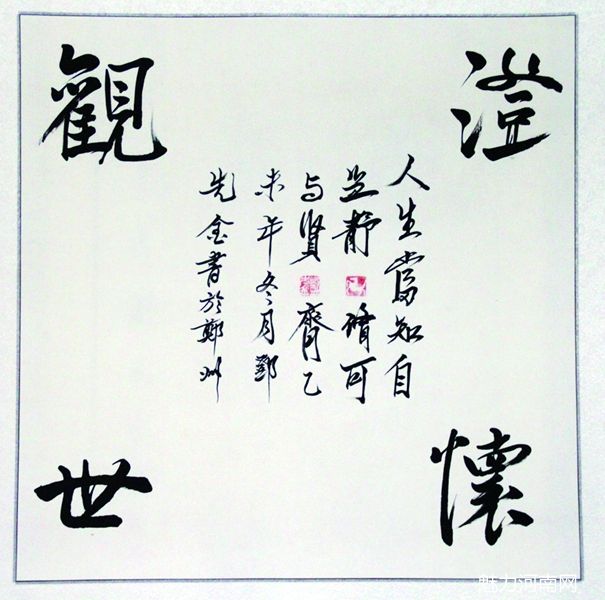 澄懷
觀世
人生當知自
足靜脩可
与賢齊乙
未年冬月鄧
先金書於鄭州
魅力河南网